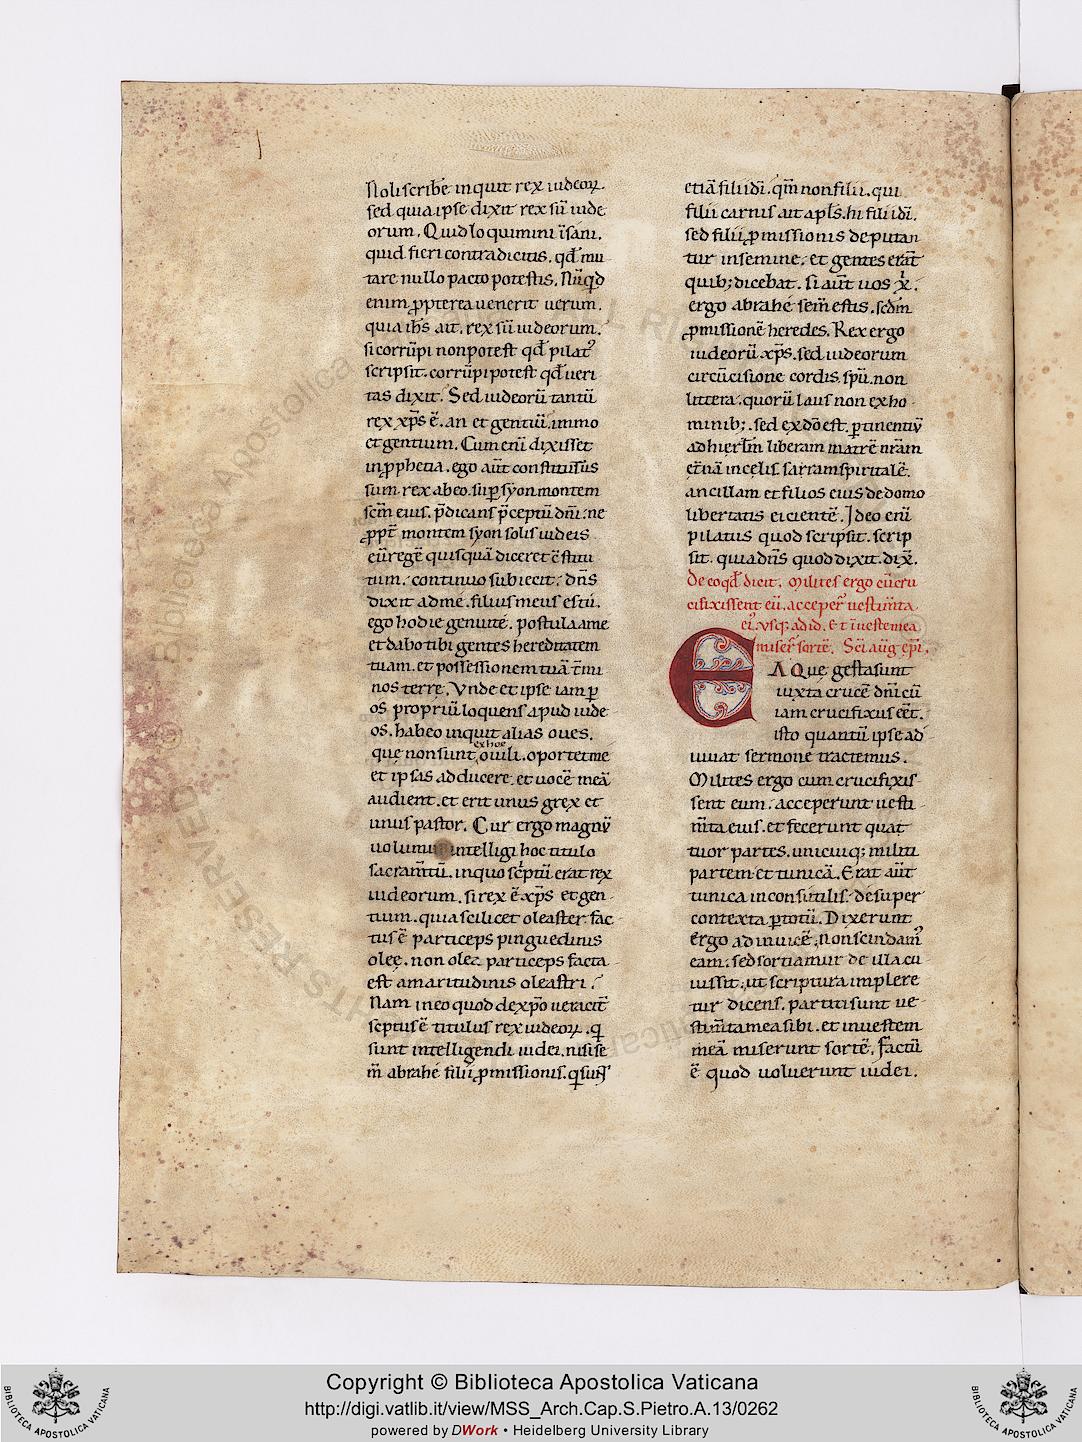 Noli scribe inquit rex iudeoꝝ.
sed quia ipse dixit rex sū iude
orum. Quid loquimini īsani.
quid fieri contradicitis. qđ mu
tare nullo pacto potestis. Nūqd
enim ꝓpterea uenerit uerum.
quia ihs ait. rex sū iudeorum.
si corrūpi non potest qđ pilat᾽
scripsit. corrūpi potest qđ ueri
tas dixit. Sed iudeorū tantū
rex xp̄s ē. an et gentiū. immo
et gentium. Cum enī dixisset
in ꝓphetia. ego aūt constitutus
sum rex ab eo. suꝑ syon montem
scm̄ eius. p̄dicans p̄ceptū dn̄i. ne
ꝓpt̄ montem syon solis iudeis
eū regē quisquā diceret c̄stitu
tum. continuo subiecit. dn̄s
dixit ad me. filius meus es tū.
ego hodie genui tē. postula a me
et dabo tibi gentes hereditatem
tuam. et possessionem tuā t̄mi
nos terrę. Vnde et ipse iam ꝑ
os propriū loquens apud iude
os. habeo inquit alias oues.
quę non sunt ex hoc ouili. oportet me
et ipsas adducere. et uocē meā
audient. et erit unus grex et
unus pastor. Cur ergo magnū
uolumus intelligi hoc titulo
sacram̄tū. in quo sc̄ptū erat rex
iudeorum. si rex ē xp̄s et gen
tium. quia scilicet oleaster fac
tus ē particeps pinguedinis
oleę. non olea particeps facta
est amaritudinis oleastri.
Nam in eo quod de xp̄o ueracit̄
sc̄ptus ē titulus rex iudeoꝝ. q
sunt intelligendi iudei. nisi se
m̄ abrahē filii ꝓmissionis. q sunt
etiā filii di. qm̄ non filii. qui
filii carnis ait apl̄s. hi filii di.
sed filii ꝓmissionis deputan
tur in semine. et gentes erāt
quib; dicebat. si aūt uos x̄.
ergo abrahē sem̄ estis. sedm̄
ꝓmissionē heredes. Rex ergo
iudeorū xp̄s. sed iudeorum
circūcisione cordis. spū. non
littera. quorū laus non ex ho
minib;. sed ex dō est. ꝑtinentiū
ad hierl̄m liberam matrē nr̄am
et̄nā in celis. sarram spiritalē.
ancillam et filios eius de domo
libertatis eicientē. Ideo enī
pilatus quod scripsit. scrip
sit. quia dn̄s quod dixit. dix̄.
De eo qđ dicit. Milites ergo cū cru
cifixissent eū. acceper̄ uestim̄ta
ei᾽. usq; ad id. Et ī ueste mea
miser̄ sortē. Sc̄i aūg ep̄i.
EA Quę gesta sunt
iuxta crucē dn̄i cū
iam crucifixus eēt.
isto quantū ipse ad
iuuat sermone tractemus.
Milites ergo cum crucifixis
sent eum. acceperunt uesti
m̄ta eius. et fecerunt quat
tuor partes. unicuiq; militi
partem. et tunicā. Erat aūt
tunica inconsutilis. desuper
contexta ꝑ totū. Dixerunt
ergo ad inuicē. Non scindam᾽
eam. sed sortiamur de illa cu
ius sit. ut scriptura implere
tur dicens. partiti sunt ue
stim̄ta mea sibi. et in uestem
meā miserunt sortē. Factū
ē quod uoluerunt iudei.
Copyright © Biblioteca Apostolica Vaticana
http://digi.vatlib.it/view/MSS_Arch.Cap.S.Pietro.A.13/0262
powered by DWork • Heidelberg University Library
BIBLIOTECA APOSTOLICA VATICANA
BIBLIOTECA APOSTOLICA VATICANA